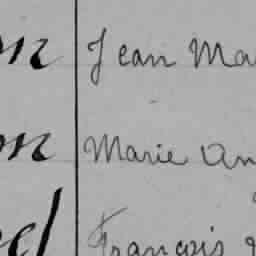 on Jean Ma
on Marie An
el François